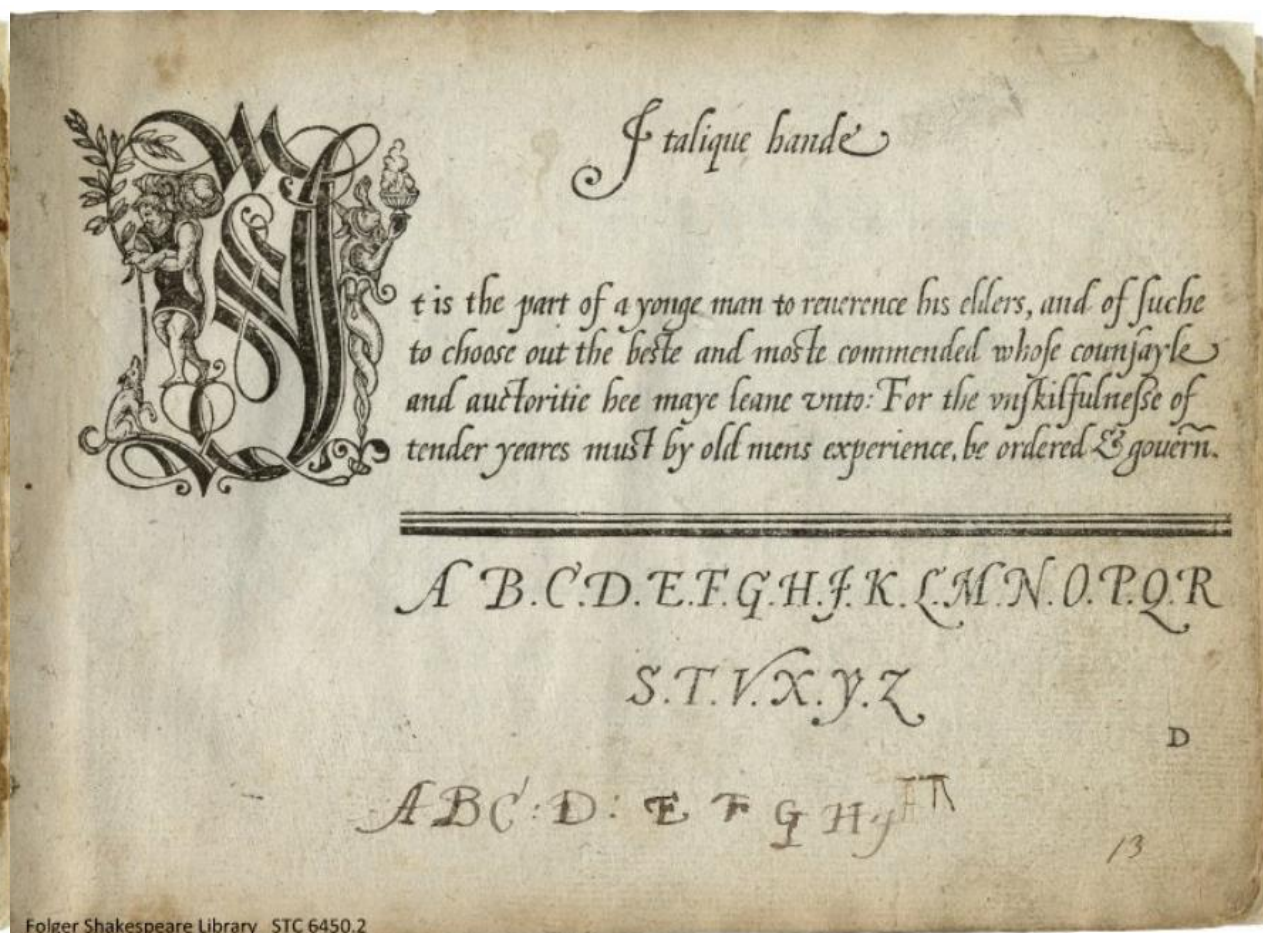 Italique hande
It is the part of a yonge man to reuerence his elders, and of ſuche
to chooſe out the beſte and moſte commended whoſe counſayle
and auctoritie hee maye leane vnto: For the vnſkilfulneſſe of
tender yeares muſt by old mens experience, be ordered & gouern̄.
A B.C.D.E.F.G.H.I.K.L.M.N.O.P.Q.R
S.T.V.X.y.Z
D
A B C : D : E F G H
13
Folger Shakespeare Library STC 6450.2